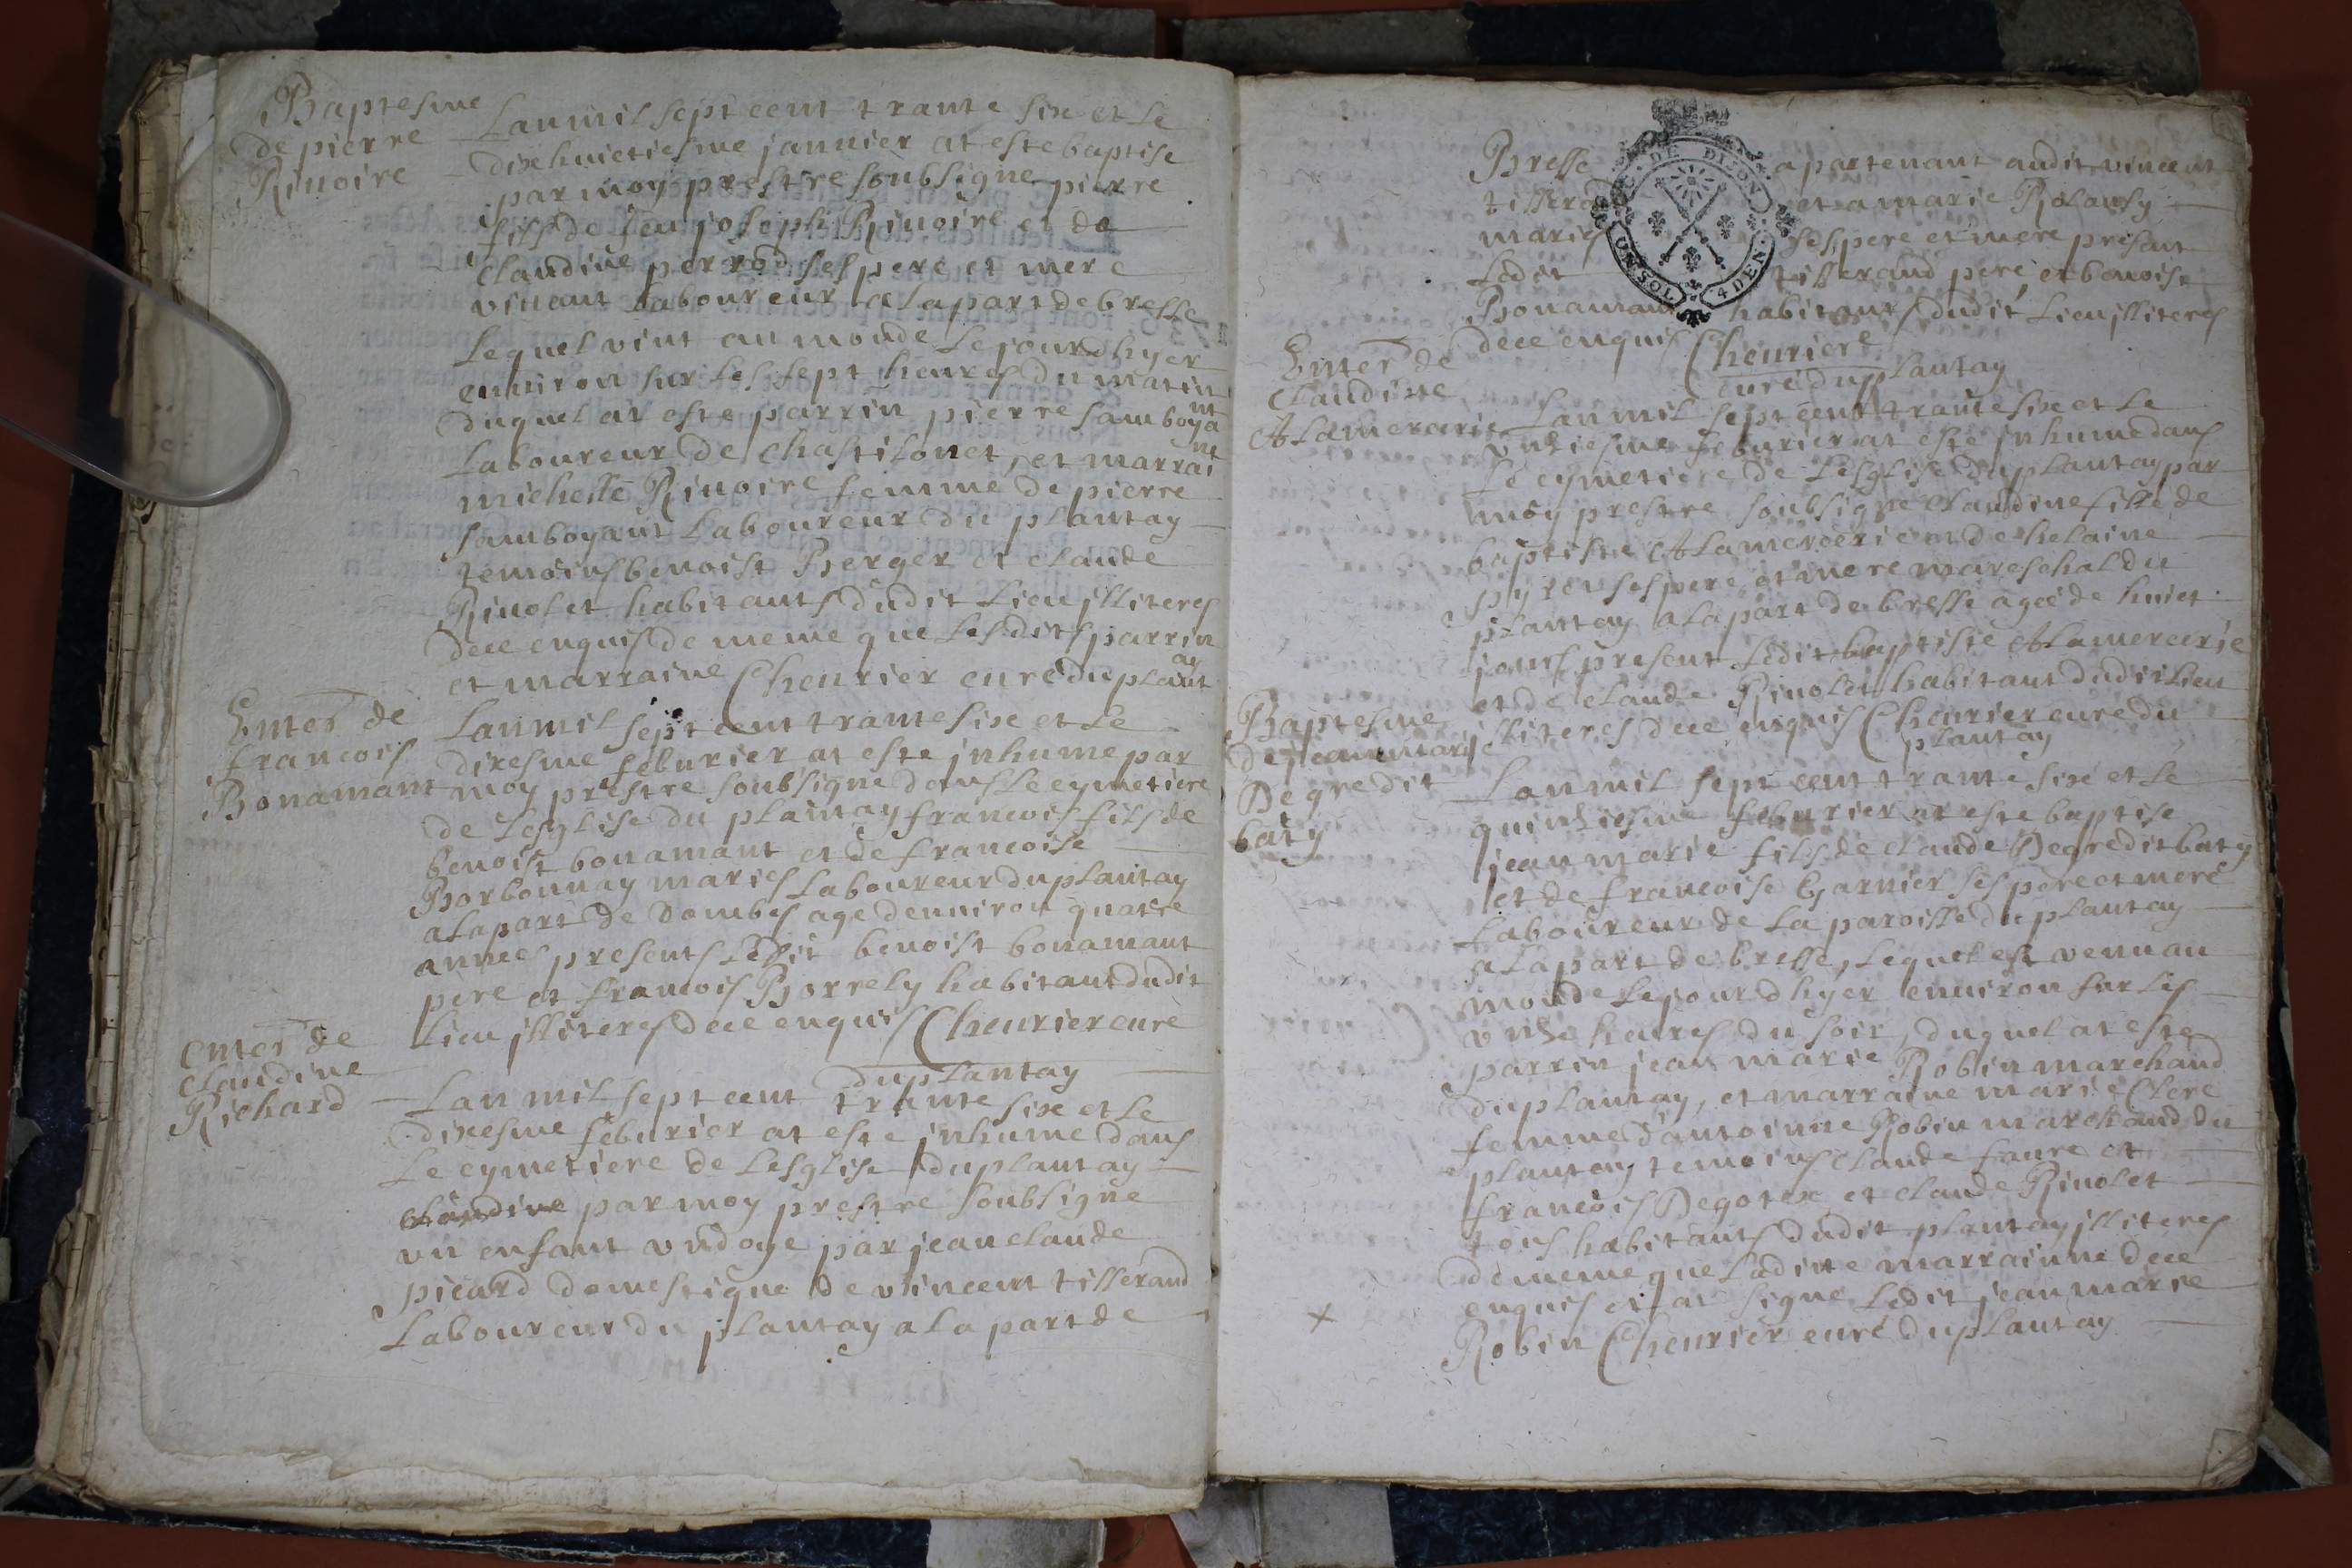 Baptesme
de pierre
Rinoire
Lan mil sept cent trante six et le
dixhuictiesme jannier at este baptise
par moy prestre soubsigne pierre
fils de feu joseph Rinoire et de
Claudine perrod ses pere et mere
vivant laboureur a la part de bresse
lequel vint au monde le jour dhyer
environ sur les sept heures du matin
duquel at este parrin pierre Samboyant
Laboureur de Chastilonet, et marraine
michelle Rinoire femme de pierre
Samboyant Laboureur du plantay
temoins benoist Berger et claude
Rinolet habitants dudit Lieu jlliteres
dece enquis de meme que lesdits parrin
et marraine Cheurier curé du plantay
Enter de
francois
Bonamant
Lan mil sept cent trante six et Le
dixesme feburier at este jnhume par
moy prestre soubsigne dans le cymetiere
de Lesglise du plantay francois fils de
benoist bonamant et de francoise
Borbonnay maries Laboureur du plantay
a la part de Dombes age denuiron quatre
annees presents Ledit benoist bonamant
pere et francois Borrely habitant dudit
Lieu jlliteres dece enquis Cheurier curé
du plantay
Enter de
claudine
Richard
Lan mil sept cent trante six et Le
dixesme feburier at este jnhume dans
Le cymetiere de Lesglise du plantay
claudine par moy prestre soubsigne
un enfant undoye par jean claude
picard domestique de vincent tillerand
Laboureur du plantay a la part de
Bresse apartenant audit vincent
tillerand et a marie Rolansy
maries ses pere et mere present
Ledit tillerand pere, et benoist
Bonamant habitants dudit Lieu jlliteres
dece enquis Cheuriere
curé du plantay
DE DIJON
UN SOL 4 DEN.
Enter de
claudine
Alamercerie
Lan mil sept cent trante six et Le
unziesme feburier at este jnhume dans
Le cymetiere de Lesglise du plantay par
moy prestre soubsigne claudine fille de
baptiste Alamercerie et de helaine
pyron ses pere et mere mareschal du
plantay a la part de bresse agee de huict
jours present Ledit baptiste Alamercerie
et de claude Rinolet habitant dudit Lieu
jlliteres dece enquis Cheurier curé du
plantay
Baptesme
de jean marie
Degredit
baty
Lan mil sept cent trante six et Le
quinziesme feburier at este baptise
jean marie fils de claude Degredit baty
et de francoise Garnier ses pere et mere
Laboureur de La paroisse du plantay
a la part de bresse, Lequel est venu au
monde Le jour dhyer environ sur Les
unze heures du soir, duquel at este
parrin jean marie Robin marchand
du plantay, et marraine marie Clere
femme dantoinne Robin marchand du
plantay temoins claude faure et
francois Degotex et claude Rinolet
tous habitants dudit plantay jlliteres
de meme que Ladite marrainne dece
enquis et at signe Ledit jean marie
Robin Cheurier curé du plantay